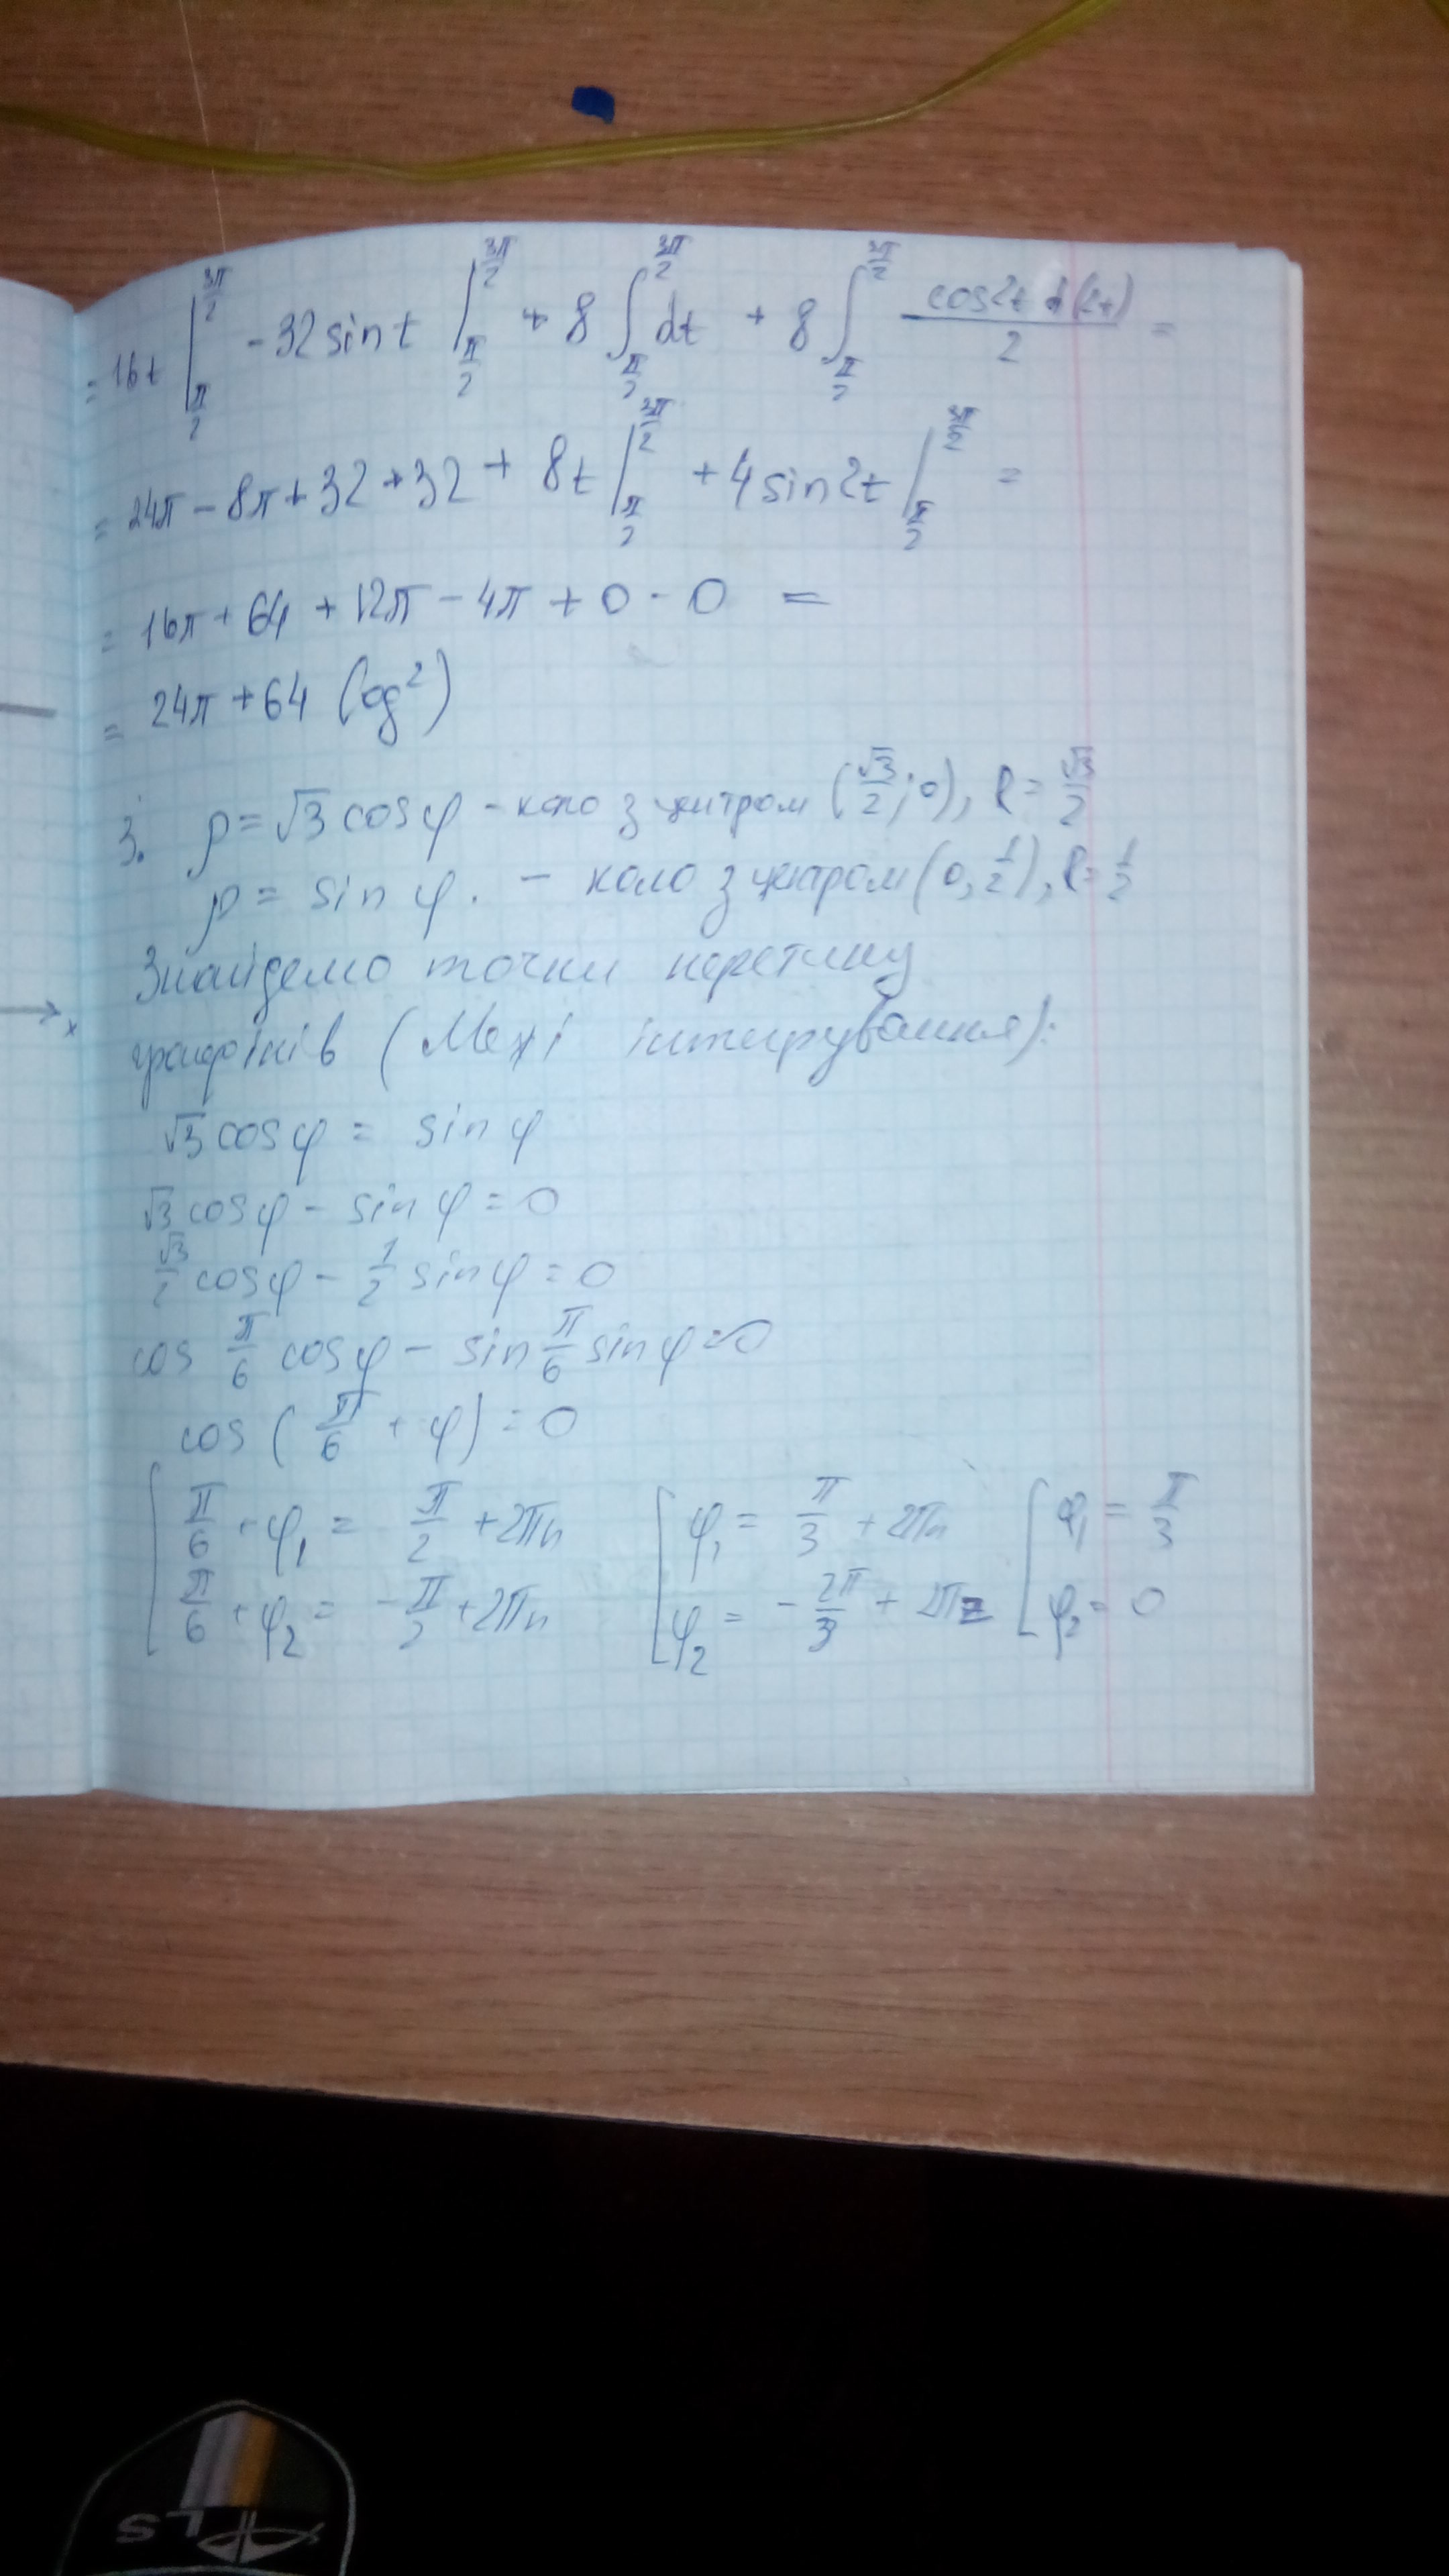 = 16t |_{π/2}^{3π/2} - 32 sin t |_{π/2}^{3π/2} + 8 ∫_{π/2}^{3π/2} dt + 8 ∫_{π/2}^{3π/2} cos2t d(2t)/2 =
= 24π - 8π + 32 + 32 + 8t |_{π/2}^{3π/2} + 4 sin2t |_{π/2}^{3π/2} =
= 16π + 64 + 12π - 4π + 0 - 0 =
= 24π + 64 (од²)
3. ρ = √3 cos φ - коло з центром (√3/2; 0), R = √3/2
ρ = sin φ. - коло з центром (0, 1/2), R = 1/2
Знайдемо точки перетину
графіків (Межі інтегрування):
√3 cos φ = sin φ
√3 cos φ - sin φ = 0
√3/2 cos φ - 1/2 sin φ = 0
cos π/6 cos φ - sin π/6 sin φ = 0
cos (π/6 + φ) = 0
[ π/6 + φ₁ = π/2 + 2πn [ φ₁ = π/3 + 2πn [ φ₁ = π/3
π/6 + φ₂ = - π/2 + 2πn φ₂ = - 2π/3 + 2πz φ₂ = 0
LS